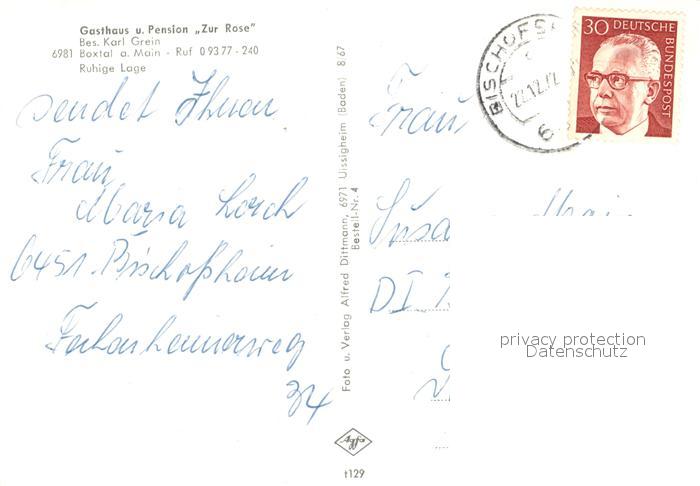 Gasthaus u. Pension „Zur Rose"
Bes. Karl Grein
6981 Boxtal a. Main - Ruf 0 93 77 - 240
Ruhige Lage
sendet Ihnen
Frau
Maria Lorch
6451 Bischofsheim
34
Foto u. Verlag Alfred Dittmann, 6971 Uissigheim (Baden) 8/67
Bestell-Nr. 4
Agfa
t129
30 DEUTSCHE
BUNDESPOST
BISCHOFSH
22.12.72
Frau
Susa
privacy protection
Datenschutz